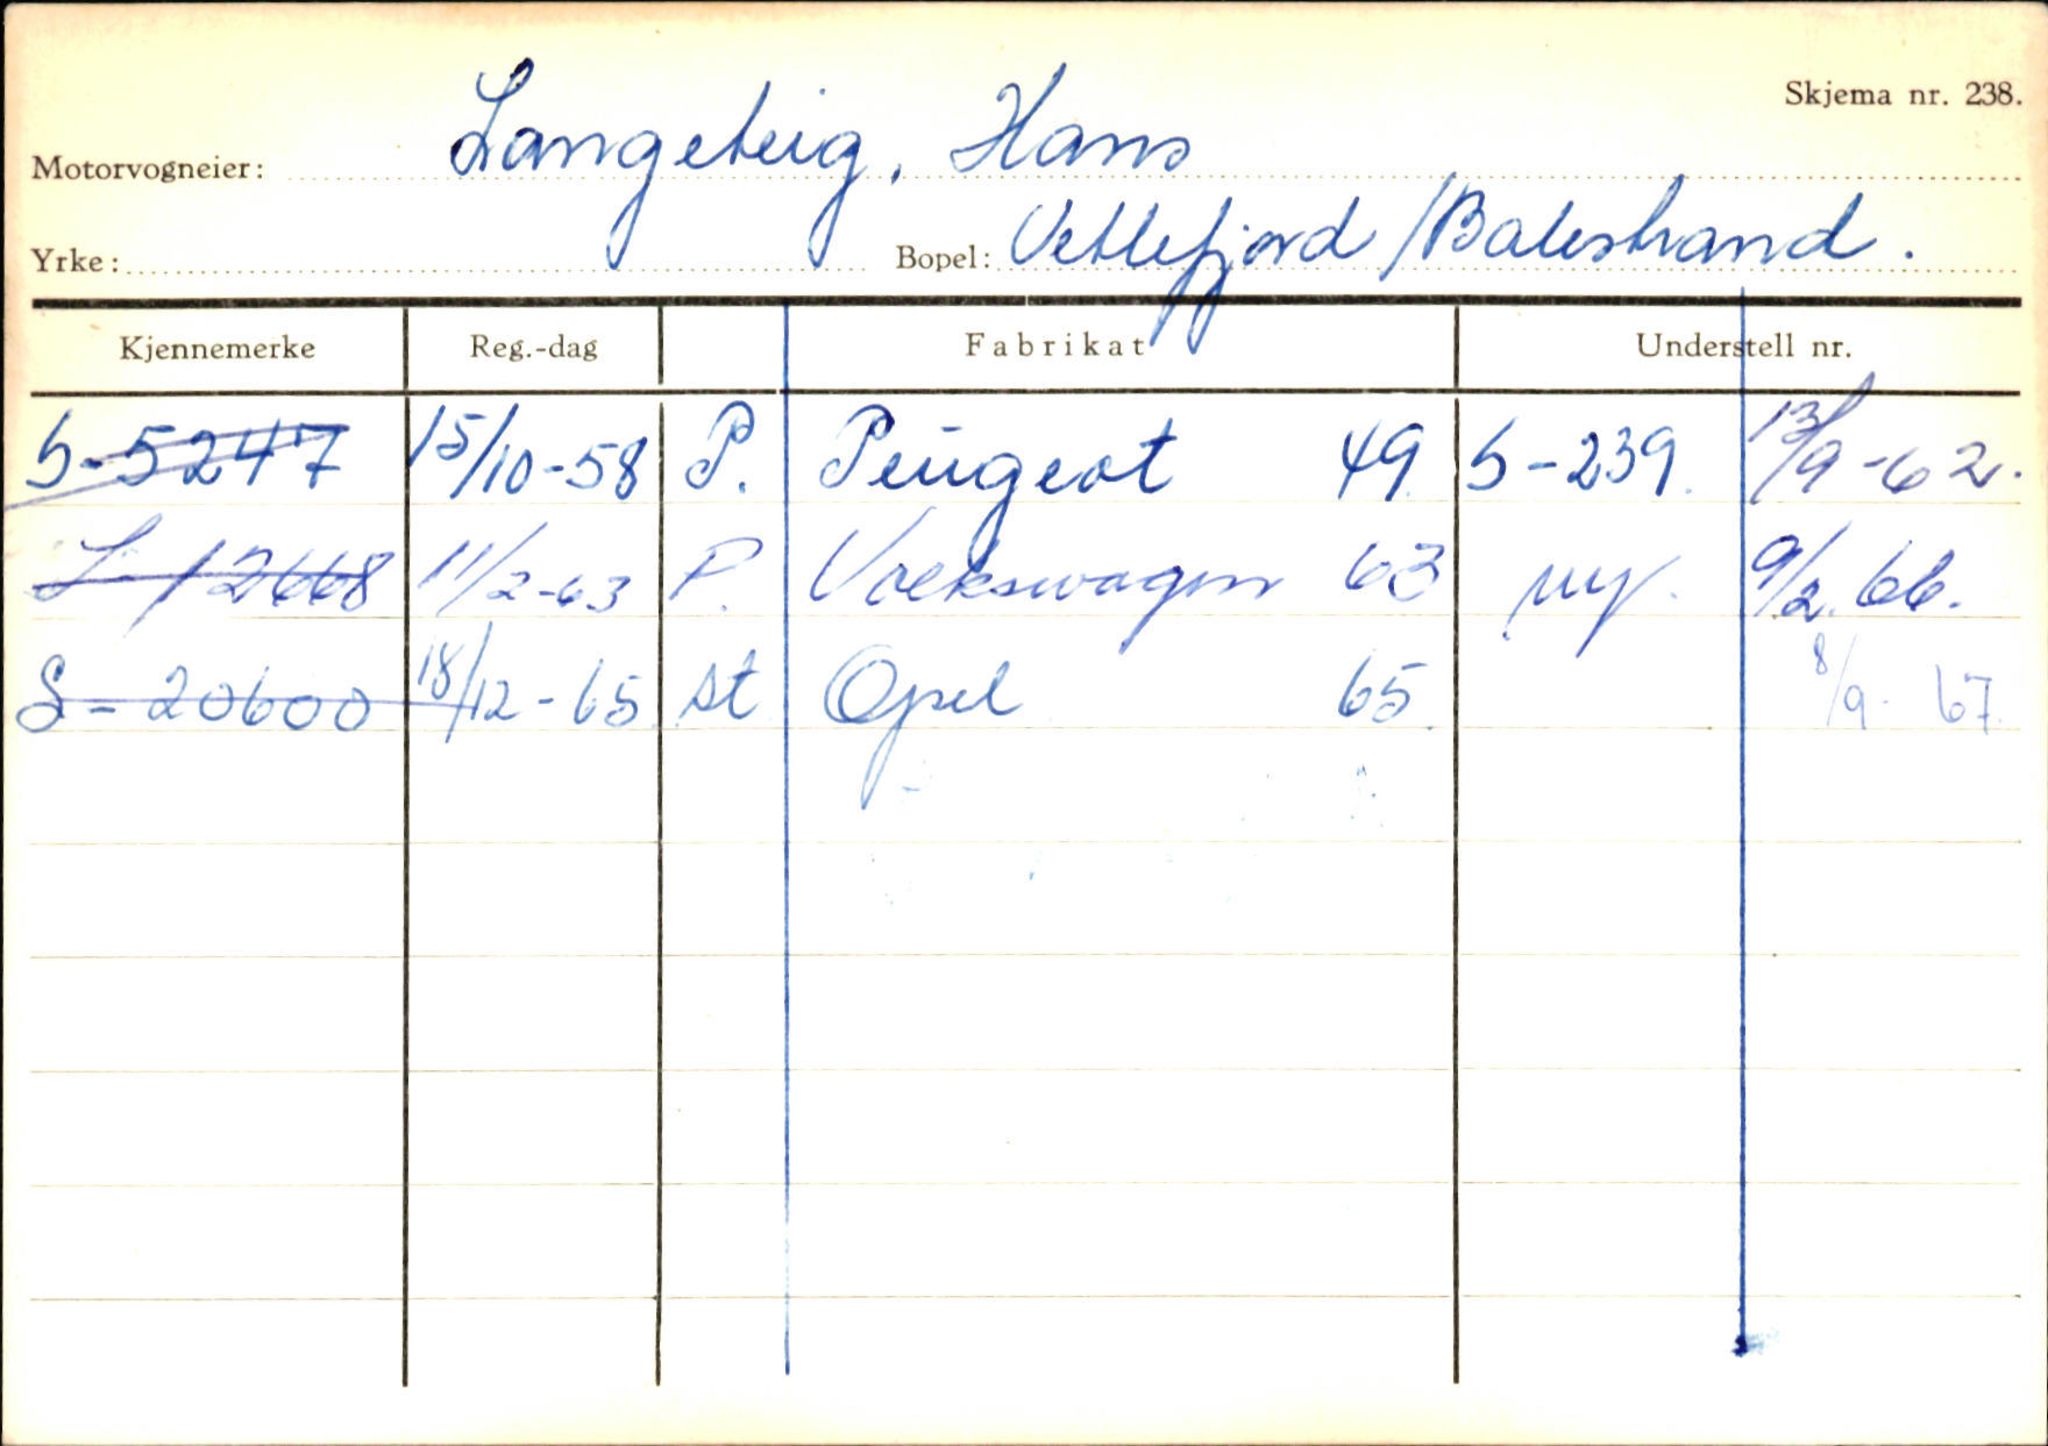 Skjema nr. 238.
Motorvogneier: Langeteig, Hans
Yrke: Bopel: Vetlefjord / Balestrand.
Kjennemerke Reg.-dag Fabrikat Understell nr.
S-5247 15/10-58 P. Peugeot 49 S-239. 13/9-62.
S-12668 11/2-63 P. Volkswagen 63 ny. 9/2.66.
S-20600 18/12-65 st Opel 65. 8/9-67.